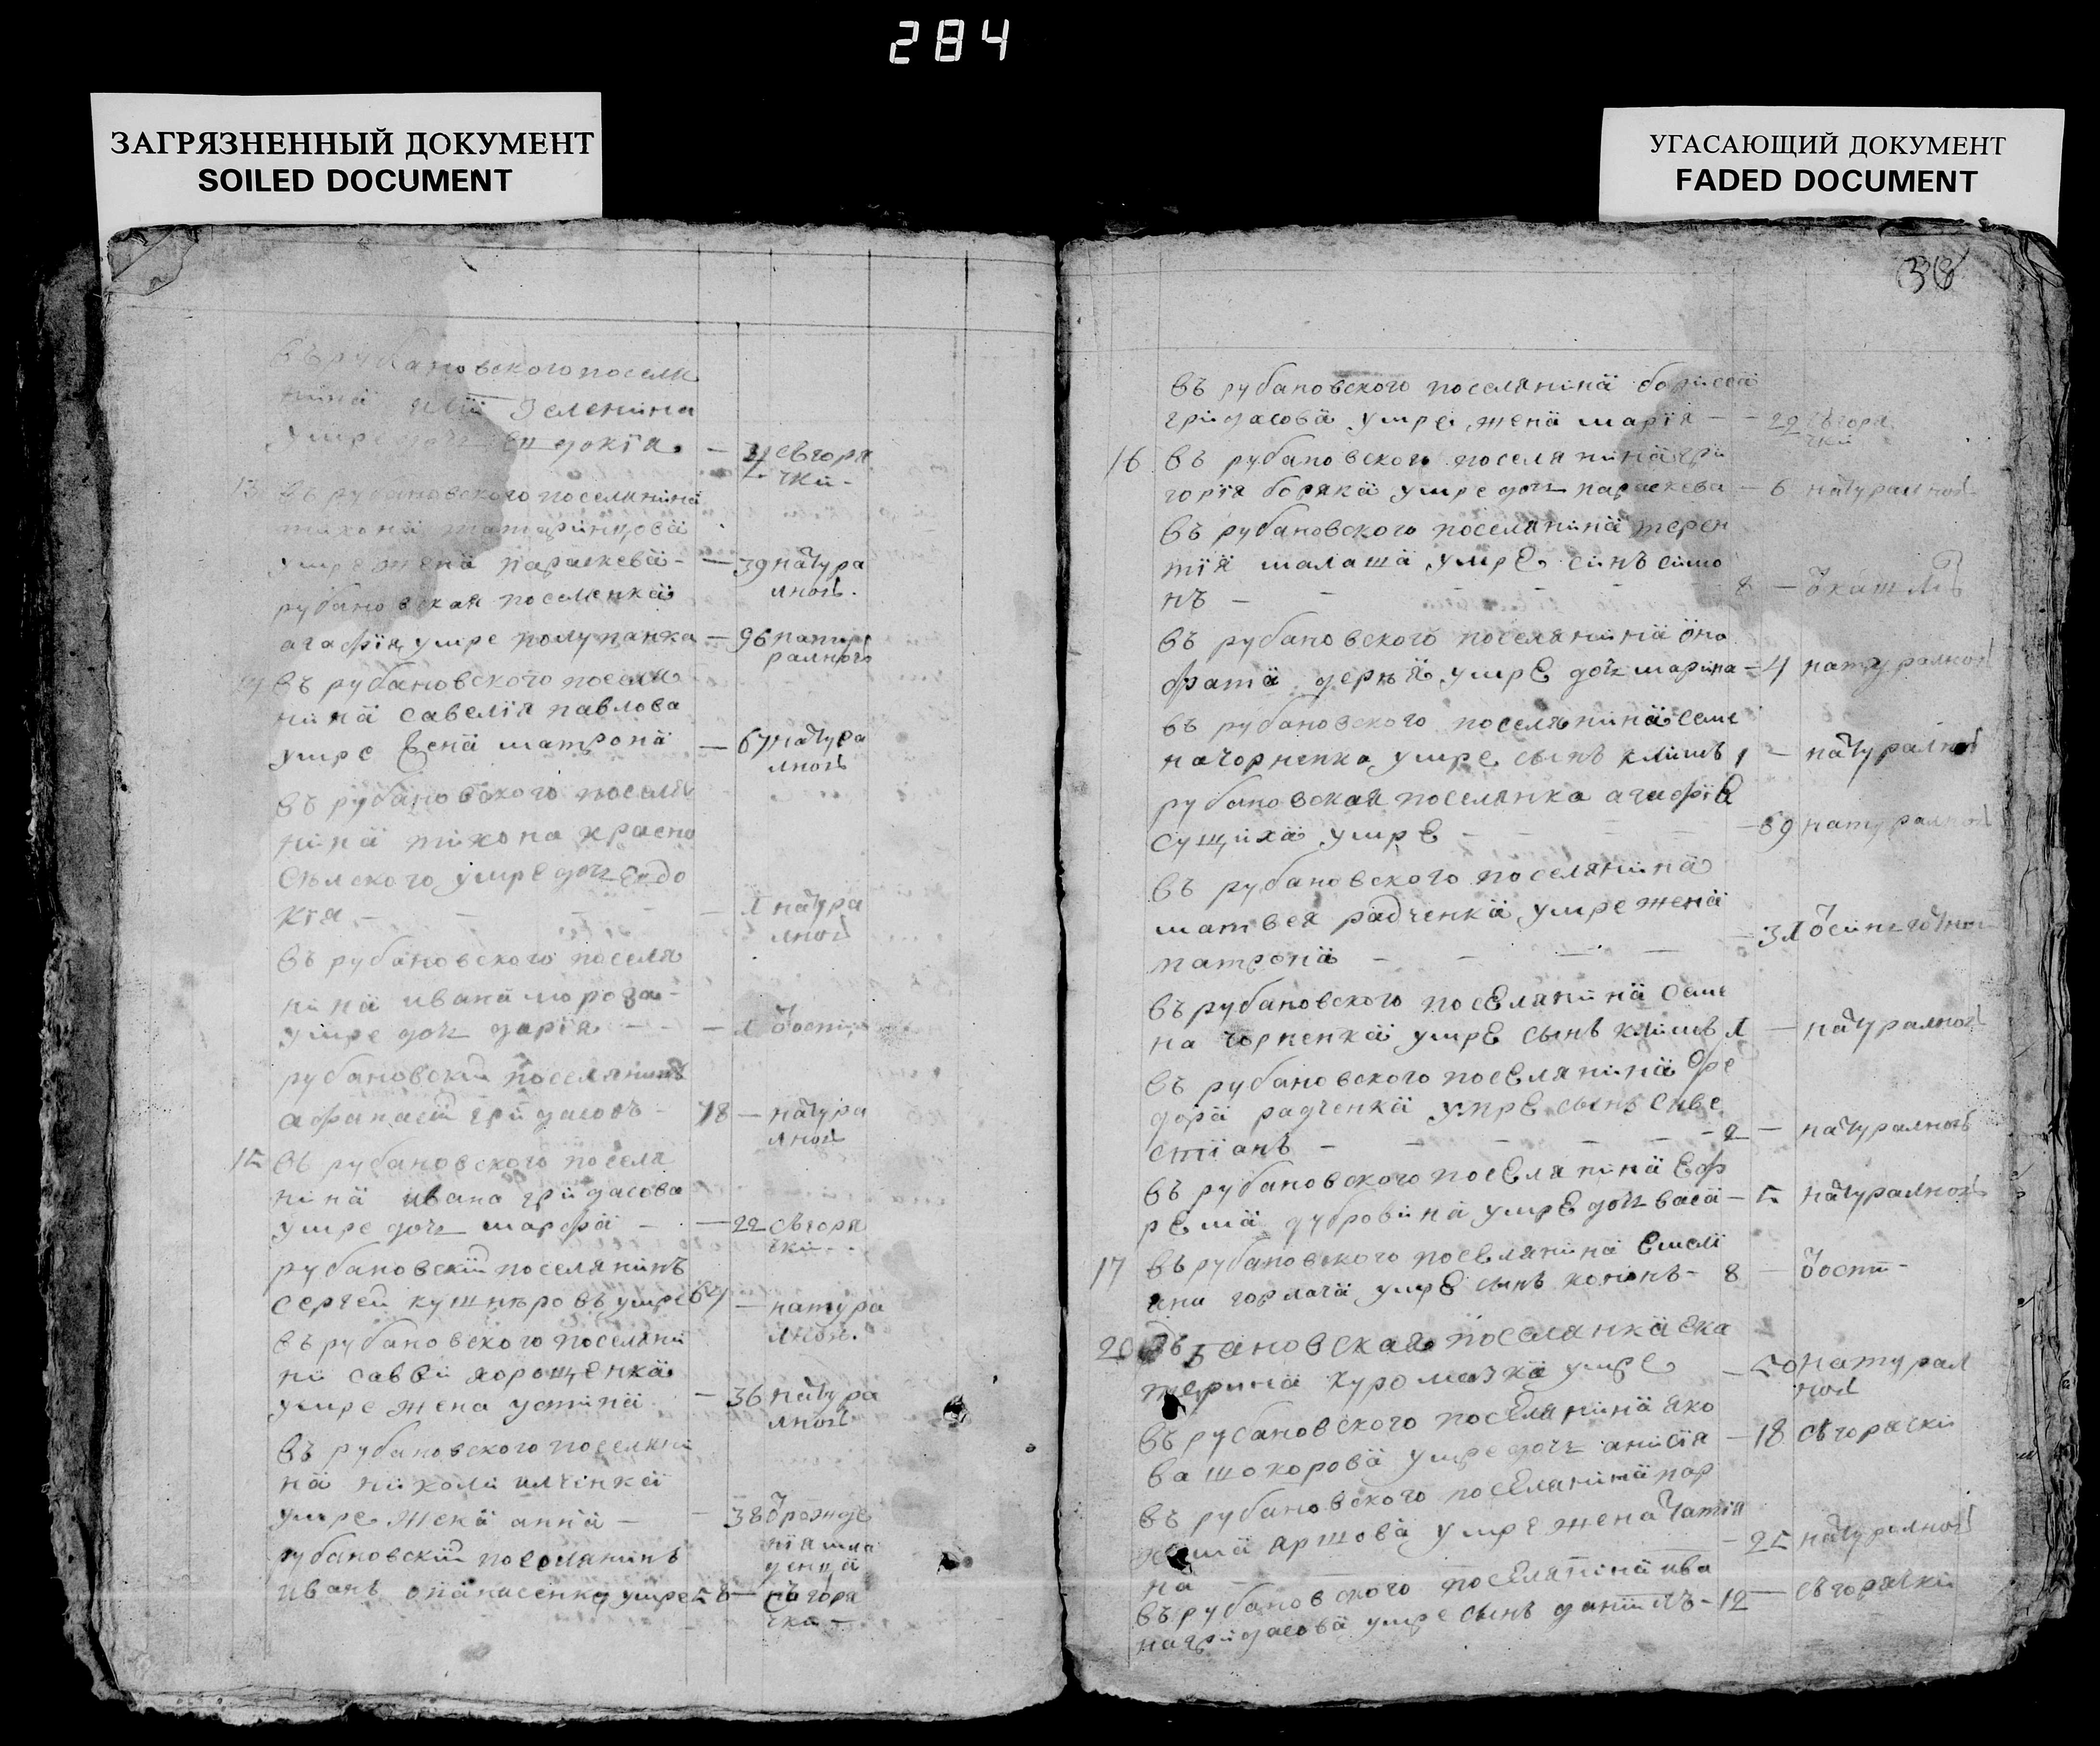 284
ЗАГРЯЗНЕННЫЙ ДОКУМЕНТ
SOILED DOCUMENT
УГАСАЮЩИЙ ДОКУМЕНТ
FADED DOCUMENT
въ рубановского поселя
нина Зеленина
умре дочь евдокїа — 4 съ горя
чки -
13 въ рубановского поселянина
тихона татаринцова
умре жена параскева - — 39 натура
лною.
рубановская поселенка
агафїя умре полупанка — 96 нату
ралного
14 въ рубановского поселя
нина савелїя павлова
умре жена матрона — 67 натура
лною
въ рубановского поселя
нина тихона красно
селского умре дочь евдо
кїя — 1 натура
лною
въ рубановского поселя
нина ивана мороза -
умре дочь дарїя — 1 ѿ оспи
рубановский поселянинъ
афанасий гридасовъ - 78 — натура
лною
15 въ рубановского поселя
нина ивана гридасова
умре дочь марфа — 22 съ горя
чки -
рубановский поселянинъ
сергей кушнѣровъ умре 64 — натура
лною.
въ рубановского поселяни
на саввы хорощенка
умре жена устина — 36 натура
лною
въ рубановского поселяни
на николи илченка
умре жена анна — 38 ѿ рожде
нїя мла
денца
рубановский поселянинъ
иванъ опанасенко умре 58 — съ горя
чки —
38
въ рубановского поселянина бориса
гридасова умре жена марїя — 29 съ горя
чки
16 въ рубановского поселянина гри
горїя боряка умре дочь параскева — 6 натуралною
въ рубановского поселянина терен
тїя малаша умре синъ симо
нъ — 8 — ѿ кашлѣ
въ рубановского поселянина оно
фата умре дочь марина — 4 натуралною
въ рубановского поселянина семе
на чорненко умре сынъ климъ 1 — натуралною
рубановская поселянка агафїе
сущиха умре — 89 натуралною
въ рубановского поселянина
матвея радченка умре жена
матрона — 31
въ рубановского поселянина семе
на чорненка умре сынъ климъ 1 — натуралною
въ рубановского поселянина фе
дора радченка умре сынъ сиве
стїанъ — 2 — натуралною
въ рубановского поселянина еф
рема дубровина умре дочь васа — 5 натуралною
17 въ рубановского поселянина емелї
яна горлача умре сынъ кононъ - 8 — ѿ оспи -
20 ановская поселянка ека
терина куромазка умре — 50 натурал
ною
въ рубановского поселянина яко
ва шокорова умре дочь анисїя — 18 съ горячки
въ рубановского поселянина пар
хома яртова умре жена татїя
на — 25 натуралною
въ рубановского поселянина ива
на гридасова умре сынъ данилъ - 12 — съ горячки